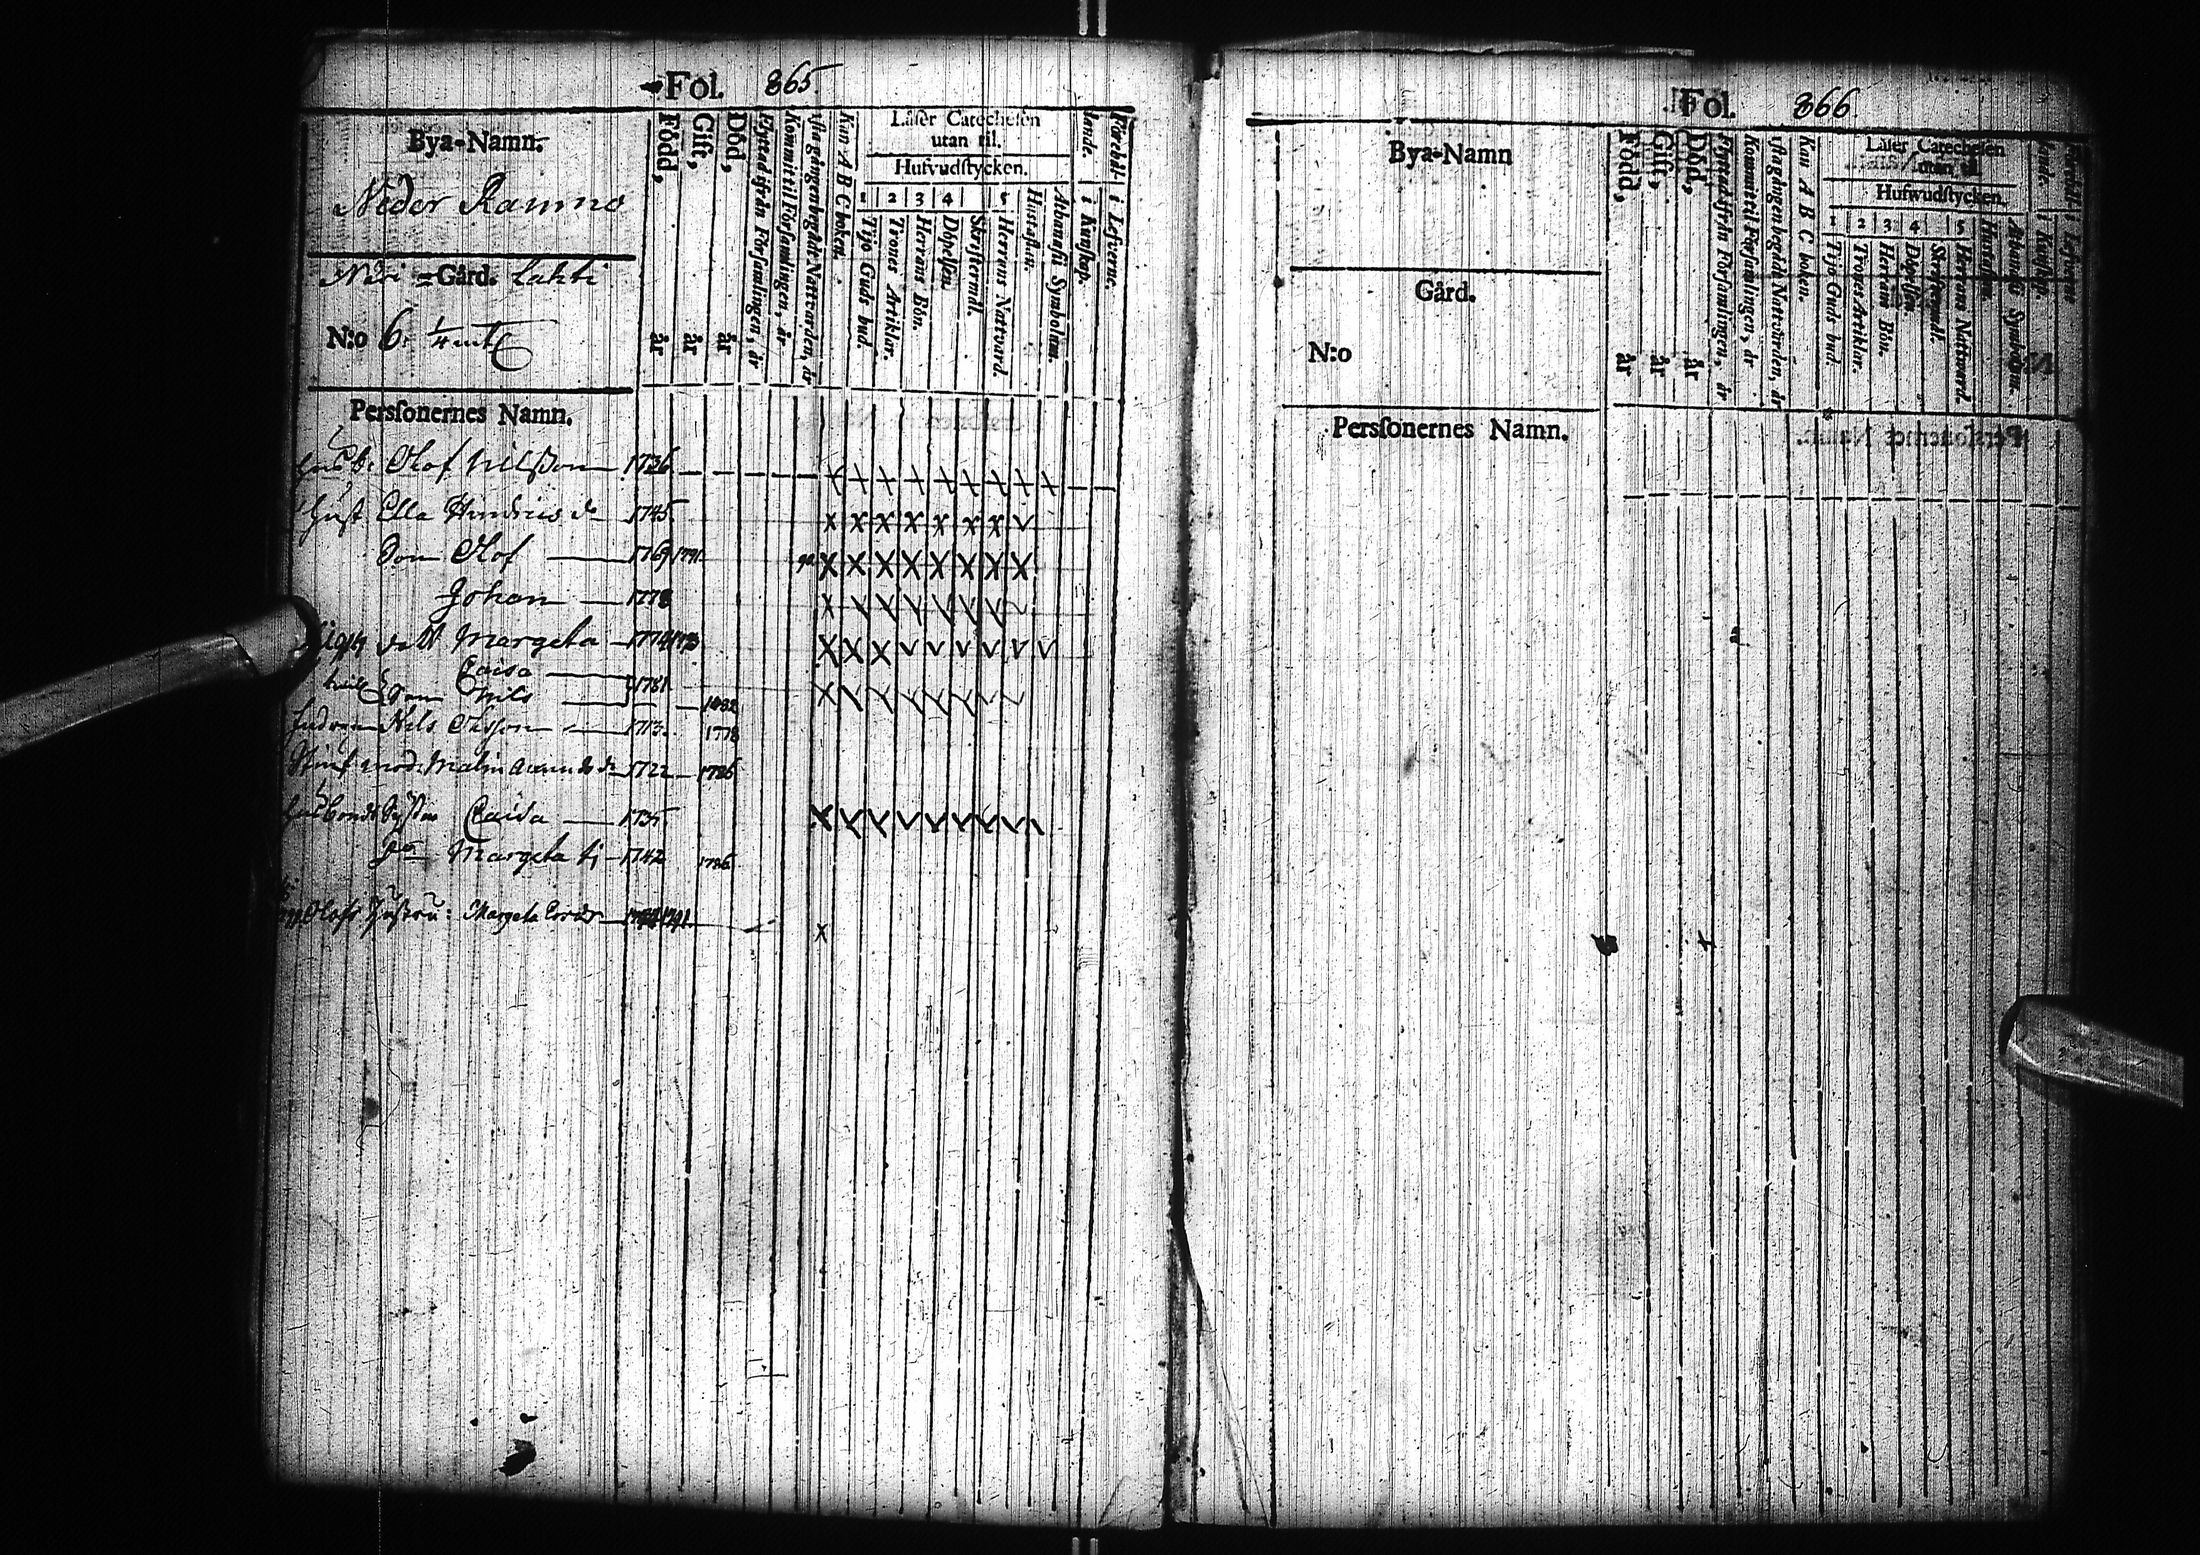 Fol. 865.
Bya-Namn.
Neder Rammo
Gård. Lahti
N:o 6.
Född, år
Gift, år
Död, år
Flyttad ifrån Församlingen, år
Kommit til Församlingen, år
1sta gången begådt Nattvarden, år
Kan A B C boken.
Läser Catechesen
utan til.
Hufvudstycken.
1 2 3 4 5
Tijo Guds bud.
Trones Artiklar.
Herrans Bön.
Döpelsen.
Skriftermål.
Herrans Nattvard.
Hustaflan.
Athanasii Symbolum.
i Kunskap.
i Lefverne.
Personernes Namn.
Husb: Olof Nilsson 1736
Hust. Ella Hindrics d 1745
Son Olof 1769 1791
Johan 1778
dott Margeta 1774
Caisa
Son Nils 1781
Nils Olsson 1713 1778
mod: Malin 1722 1786
Caisa 1735
Margeta 1742 1786
Olofs Hustru: Margeta
Fol. 866
Bya-Namn
Gård.
N:o
Född, år
Gift, år
Död, år
Flyttad ifrån Församlingen, år
Kommit til Församlingen, år
1sta gången begådt Nattvarden, år
Kan A B C boken.
Läser Catechesen
utan til
Hufwudstycken.
1 2 3 4 5
Tijo Guds bud.
Trones Artiklar.
Herrans Bön.
Döpelsen.
Skriftermål.
Herrans Nattvard.
Hustaflan.
Athanasii Symbolum.
i Kunskap.
i Lefverne
Personernes Namn.